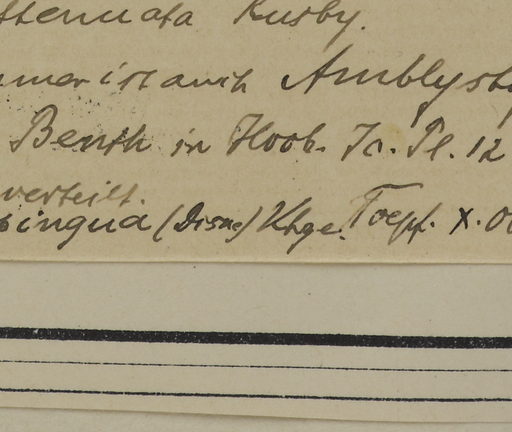 ttenuata Rusby.
mmer ist auch Amblyst
Benth in Hook. Ic. Pl. 12
verteilt.
singua (Disne) Khge. Toepf. X. 0